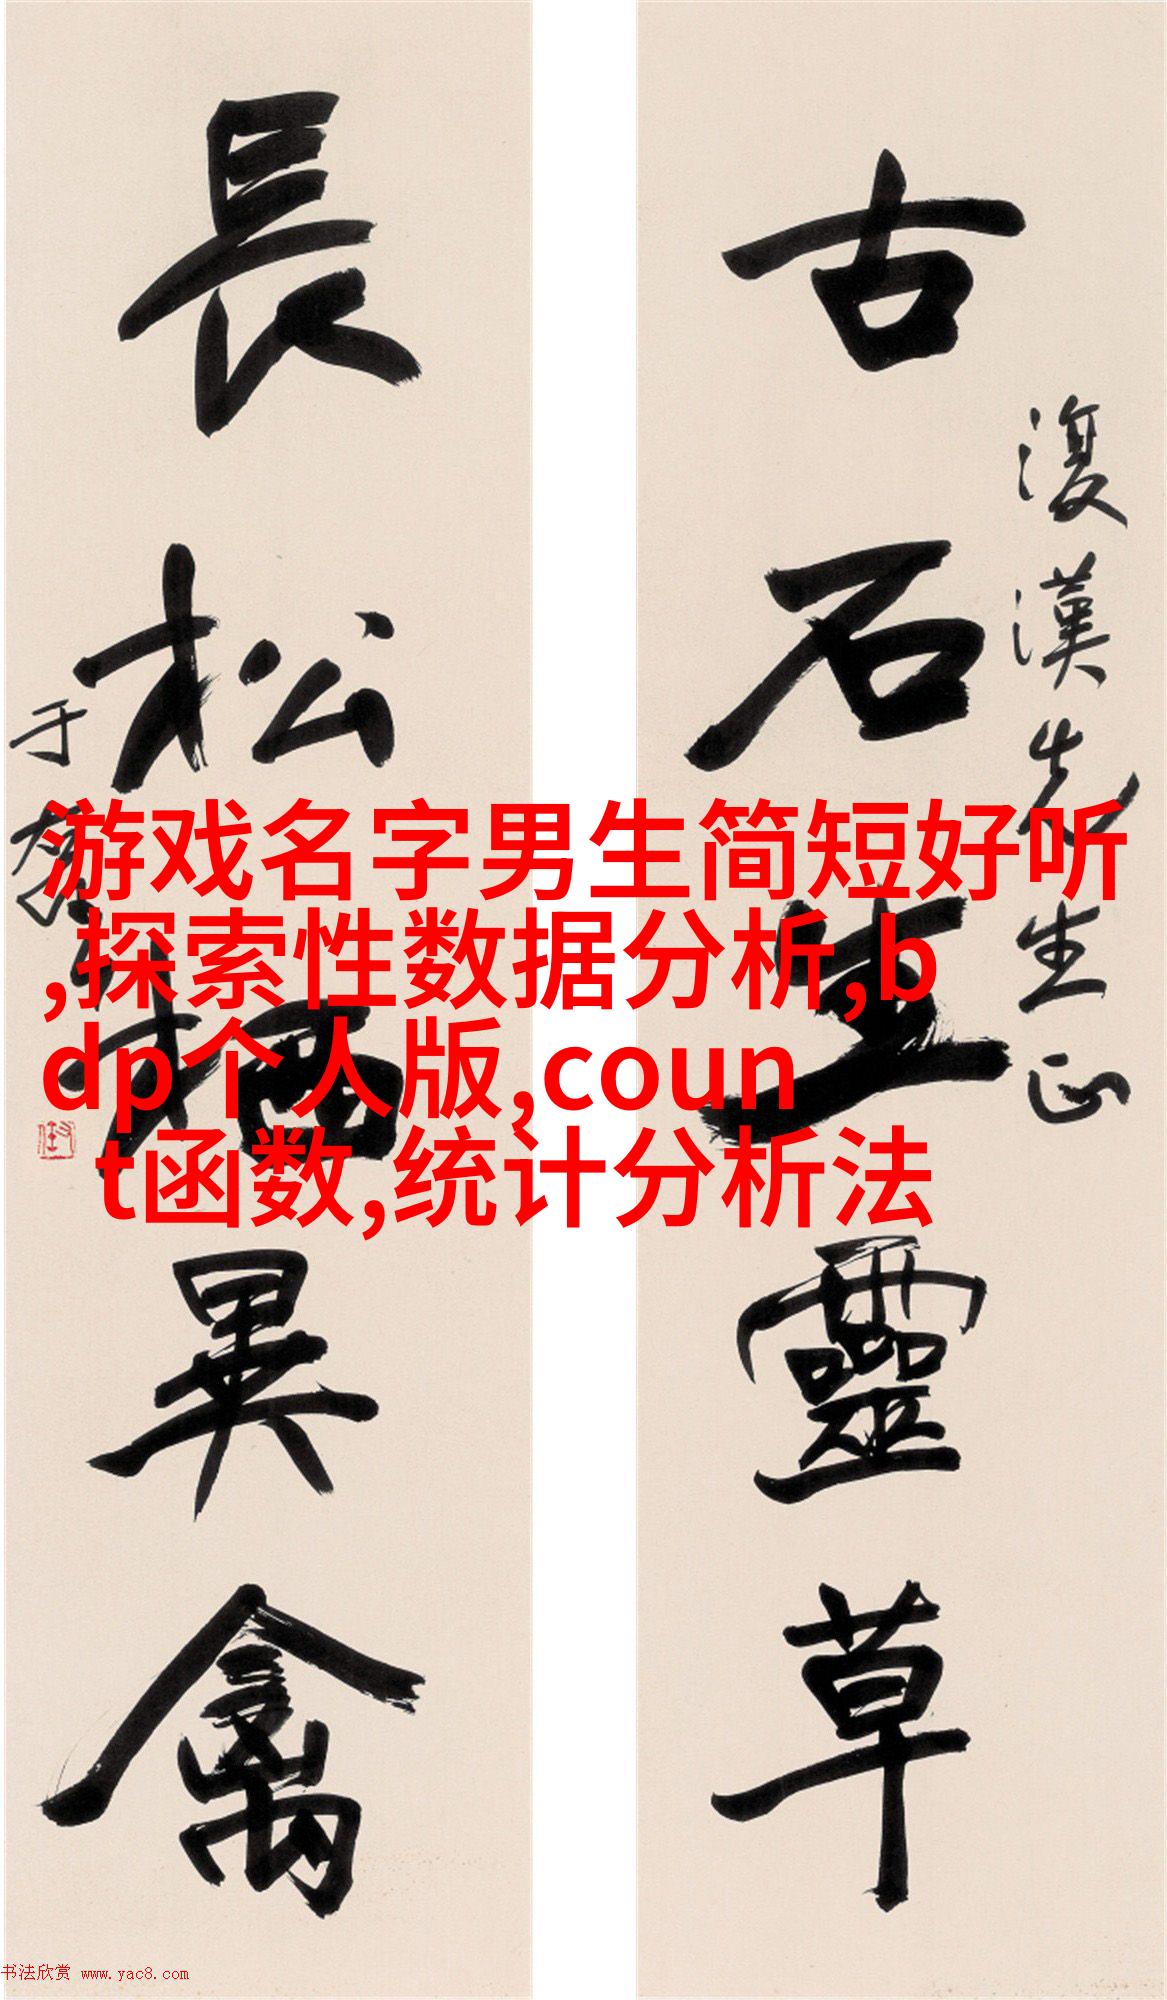 古石生靈草
復漢先生正
長松栖異禽
于右任
游戏名字男生简短好听
,探索性数据分析,b
dp个人版,coun
t函数,统计分析法
书法欣赏 www.yac8.com